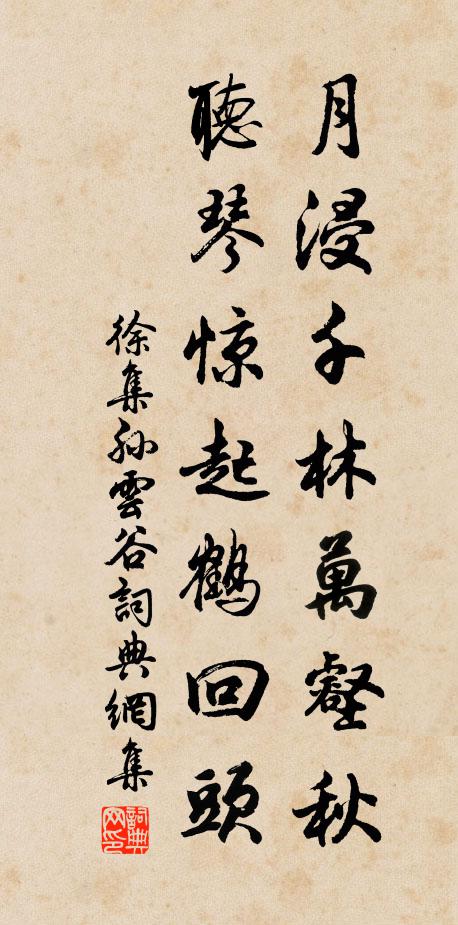 月浸千林萬壑秋
聽琴惊起鶴回頭
徐集孙雲谷詞典網集
詞典网印